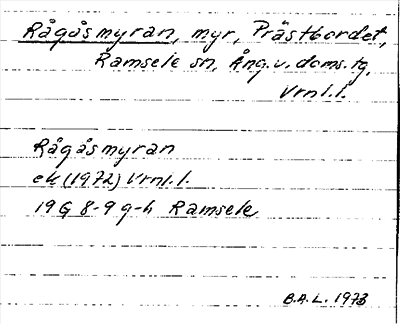 Rågåsmyran, myr, Prästbordet,
Ramsele sn, Ång. v. doms. tg,
Vrnl. l.
Rågåsmyran
ek (1972) Vrnl. l.
19G 8-9 g-h Ramsele
B.A.L. 1973